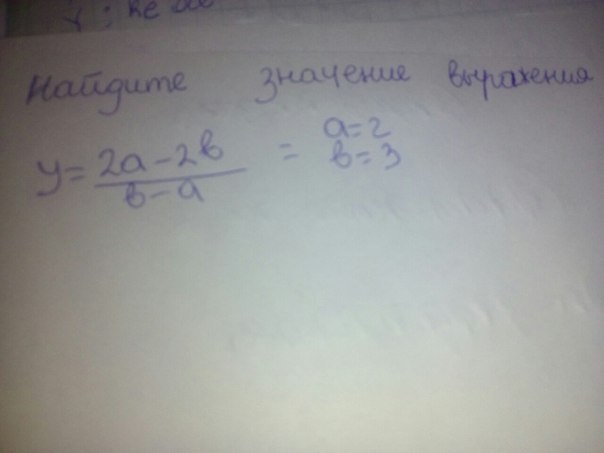 Найдите значение выражения
y = \frac{2a - 2b}{b - a} = a = 2
b = 3